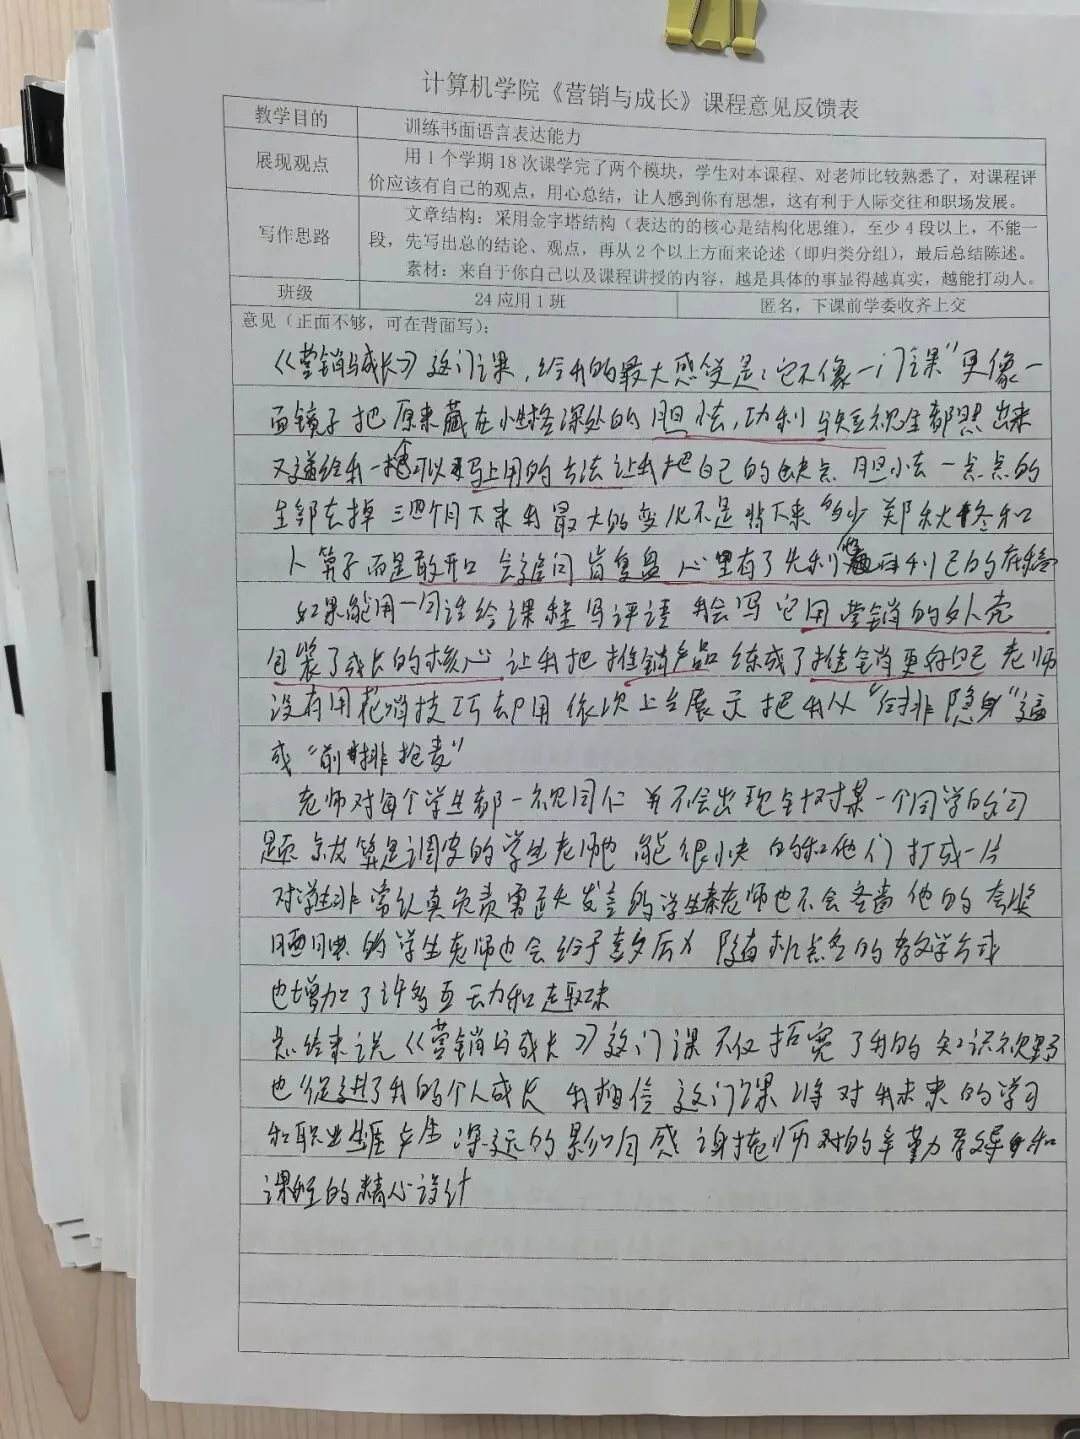 计算机学院《营销与成长》课程意见反馈表
教学目的 训练书面语言表达能力
展现观点 用1个学期18次课学完了两个模块，学生对本课程、对老师比较熟悉了，对课程评
价应该有自己的观点，用心总结，让人感到你有思想，这有利于人际交往和职场发展。
写作思路 文章结构：采用金字塔结构（表达的的核心是结构化思维），至少4段以上，不能一
段，先写出总的结论、观点，再从2个以上方面来论述（即归类分组），最后总结陈述。
素材：来自于你自己以及课程讲授的内容，越是具体的事显得越真实，越能打动人。
班级 24应用1班 匿名，下课前学委收齐上交
意见（正面不够，可在背面写）：
《营销与成长》这门课，给我的最大感受是：它不像一门课"更像一
面镜子 把原来藏在性格深处的胆怯，功利与短视全都照出来
又递给我一把可以马上用的方法 让我把自己的缺点 胆怯一点点的
全部去掉 三四个月下来 我最大的变化不是背下来多少郑秋冬和
算子 而是敢开口 会追问 肯复盘 心里有了先利 再利己的
如果能用一句话给课程写评语 我会写 它用营销的外壳
包装了成长的核心 让我把推销产品 练成了推销更好的自己 老师
没有用花哨技巧 却用依次上台展示 把我从"后排隐身"逼
成"前排抢麦"
老师对每个学生都一视同仁 并不会出现针对某一个同学的问
题 就算是调皮的学生 老师也能很快的和他们打成一片
对学生非常认真负责 勇于发言的学生老师也不会吝啬他的夸奖
腼腆的学生老师也会给予 随机点名的教学方式
也增加了许多互动和趣味
总结来说《营销与成长》这门课不仅拓宽了我的知识视野
也促进了我的个人成长 我相信这门课将对我未来的学习
和职业生涯产生深远的影响 感谢老师的辛勤教导和
课程的精心设计